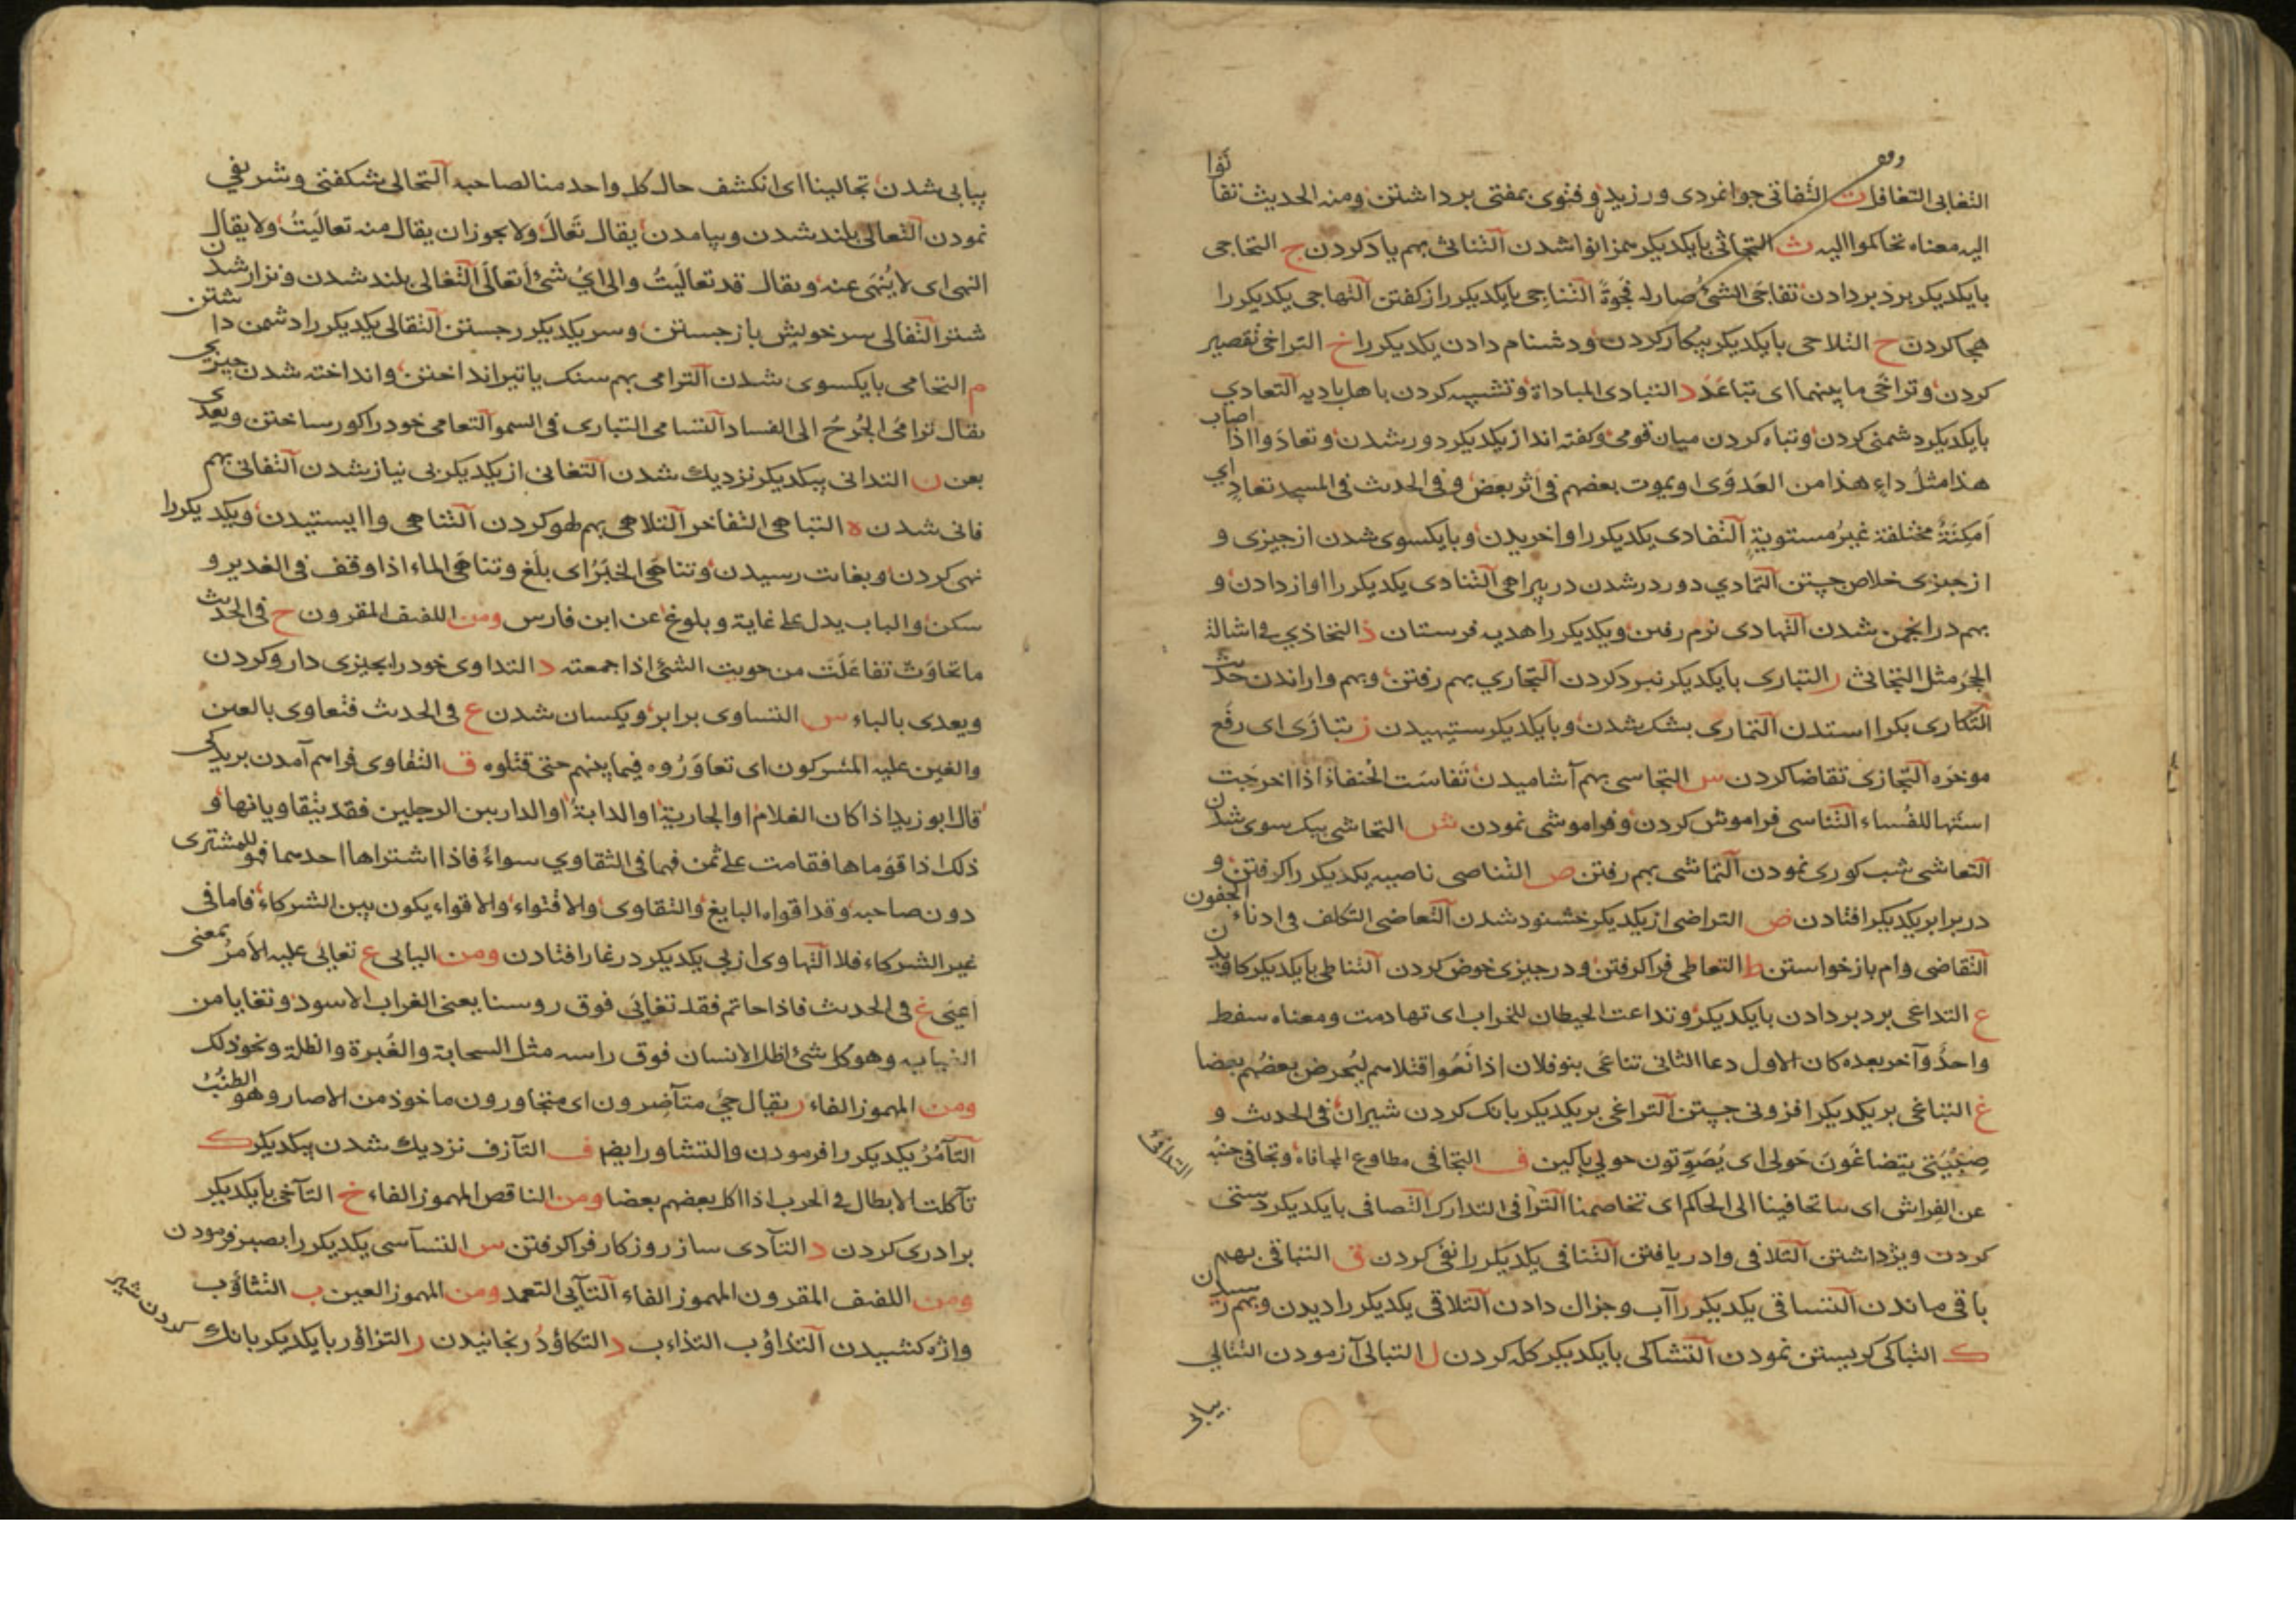 وقف
التغابی التغافل ت التفاتی جوانمردی ورزیدن و فتوی بمفتی برداشتن ومنه الحدیث تفاتوا
الیه معناه تحاکموا الیه ث التجاثی بایکدیگر بزانوا شدن التناثی بهم یاد کردن ج التحاجی
بایکدیکر برد بردادن تفاجی الشیء صار له فجوة التناجی بایکدیکر راز کفتن التهاجی یکدیکر را
هجا کردن ح التلاحی بایکدیکر پیکار کردن و دشنام دادن یکدیکر را خ التراخی تقصیر
کردن و تراخی ما بینهما ای تباعد د التبادی المباداة و تشبیه کردن باهل بادیه التعادی
بایکدیکر دشمنی کردن و تباه کردن میان قومی و کفته اند از یکدیکر دور شدن و تعادوا اذا اصاب
هذا مثل داء هذا من العدوی او یموت بعضهم فی اثر بعض و فی الحدیث فی المسجد تعادی ای
امکنة مختلفة غیر مستویة التفادی یکدیکر را واخریدن و بایکسوی شدن از چیزی و
از چیزی خلاص جستن التمادی دور درشدن در بیراهی التنادی یکدیکر را اواز دادن و
بهم در انجمن شدن التهادی نرم رفتن و یکدیکر را هدیه فرستادن ذ التخاذی فی اشالة
الحجر مثل التجاثی ر التباری بایکدیکر نبرد کردن التجاری بهم رفتن و بهم واراندن حدیث
التکاری بکرا استدن التماری بشک شدن و بایکدیکر ستیهیدن ز تبازی ای رفع
موخره التجازی تقاضا کردن س التحاسی بهم آشامیدن تفاست الخنفاء اذا اخرجت
استها للفساء التناسی فراموش کردن و فراموشی نمودن ش التحاشی بیک سوی شدن
التعاشی شب کوری نمودن التماشی بهم رفتن ص التناصی ناصیه یکدیکر را کرفتن و
در برابر یکدیکر افتادن ض التراضی از یکدیکر خشنود شدن التغاضی التکلف فی ادناء الجفون
التقاضی وام بازخواستن ط التعاطی فراکرفتن و در چیزی خوض کردن التناطی بایکدیکر کاویدن
ع التداعی برد بردادن بایکدیکر و تداعت الحیطان للخراب ای تهادمت و معناه سقط
واحد و آخر بعده کان الاول دعا الثانی تناعی بنو فلان اذا نعوا قتلاهم لیحرض بعضهم بعضا
غ التباغی بر یکدیکر افزونی جستن التراغی بر یکدیکر بانک کردن شتران فی الحدیث و
صبیتی یتضاغون حولی ای یصوتون حولی باکین ف التجافی مطاوع المجافاة و تجافی جنبه
عن الفراش ای نبا تحافینا الی الحاکم ای تخاصمنا الترافی التدارک التصافی بایکدیکر دوستی
کردن ویژه داشتن التلافی وادریافتن التنافی یکدیکر را نفی کردن ق التباقی بهم
باقی ماندن التساقی یکدیکر را آب و جز ان دادن التلاقی یکدیکر را دیدن و بهم رسیدن
ک التباکی کریستن نمودن التشاکی بایکدیکر کله کردن ل التبالی آزمودن التتالی
بیابی
بیابی شدن تجالینا ای انکشف حال کل واحد منا لصاحبه التحالی شکفتی و شرینی
نمودن التعالی بلند شدن و بیامدن یقال تعال ولا یجوز ان یقال منه تعالیت ولا یقال
النهی ای لا ینهی عنه و یقال قد تعالیت والی ای شیء اتعالی التغالی بلند شدن و نزار شدن
شتر التفالی سر خویش باز جستن و سر یکدیکر جستن التقالی یکدیکر را دشمن داشتن
م التحامی بایکسوی شدن الترامی بهم سنک یا تیر انداختن و انداخته شدن چیزی
یقال ترامی الجرح الی الفساد التسامی التباری فی السمو التعامی خود را کور ساختن و یعدی
بعن ن التدانی بیکدیکر نزدیک شدن التغانی از یکدیکر بی نیاز شدن التفانی بهم
فانی شدن ه التباهی التفاخر التلاهی بهم لهو کردن التناهی وا ایستیدن و یکدیکر را
نهی کردن و بغایت رسیدن و تناهی الخبر ای بلغ و تناهی الماء اذا وقف فی الغدیر و
سکن و الباب یدل علی غایة و بلوغ عن ابن فارس ومن اللفیف المقرون ح فی الحدیث
ما تحاوت تفاعلت من حویت الشیء اذا جمعته د التداوی خود را بچیزی دارو کردن
و یعدی بالباء س التساوی برابر و یکسان شدن ع فی الحدیث فتعاوی بالعین
والغین علیه المشرکون ای تعاوروه فیما بینهم حتی قتلوه ق التقاوی فراهم آمدن بر یکی
قال ابو زید اذا کان الغلام او الجاریة او الدابة او الدار بین الرجلین فقد یتقاویانها و
ذلک اذا قوماها فقامت علی ثمن فهما فی التقاوی سواء فاذا اشتراها احدهما فهو للمشتری
دون صاحبه و قد اقواه البایع والتقاوی والاقتواء والاقواء یکون بین الشرکاء فاما فی
غیر الشرکاء فلا التهاوی از پی یکدیکر در غار افتادن ومن الیایی ع تعایی علیه الامر بمعنی
اعیی غ فی الحدیث فاذا حاتم فقد تغایی فوق روسنا یعنی الغراب الاسود و تغایا من
الغیایه وهو کل شیء اظل الانسان فوق راسه مثل السحابة والغبرة والظلة و نحو ذلک
ومن المهموز الفاء ر یقال حی متآصرون ای متجاورون ماخوذ من الاصار وهو الطنب
التآمر یکدیکر را فرمودن والتشاور ایضا ف التآزف نزدیک شدن بیکدیکر ک
تآکلت الابطال فی الحرب اذا اکل بعضهم بعضا ومن الناقص المهموز الفاء خ التآخی بایکدیکر
برادری کردن د التآدی ساز روزکار فراکرفتن س التسآسی یکدیکر را بصبر فرمودن
ومن اللفیف المقرون المهموز الفاء التآیی التعمد ومن المهموز العین ب التثاؤب
واژه کشیدن التذاؤب التذاءب د التکاؤد رنجانیدن ر التزاؤر بایکدیکر بانک کردن شیر